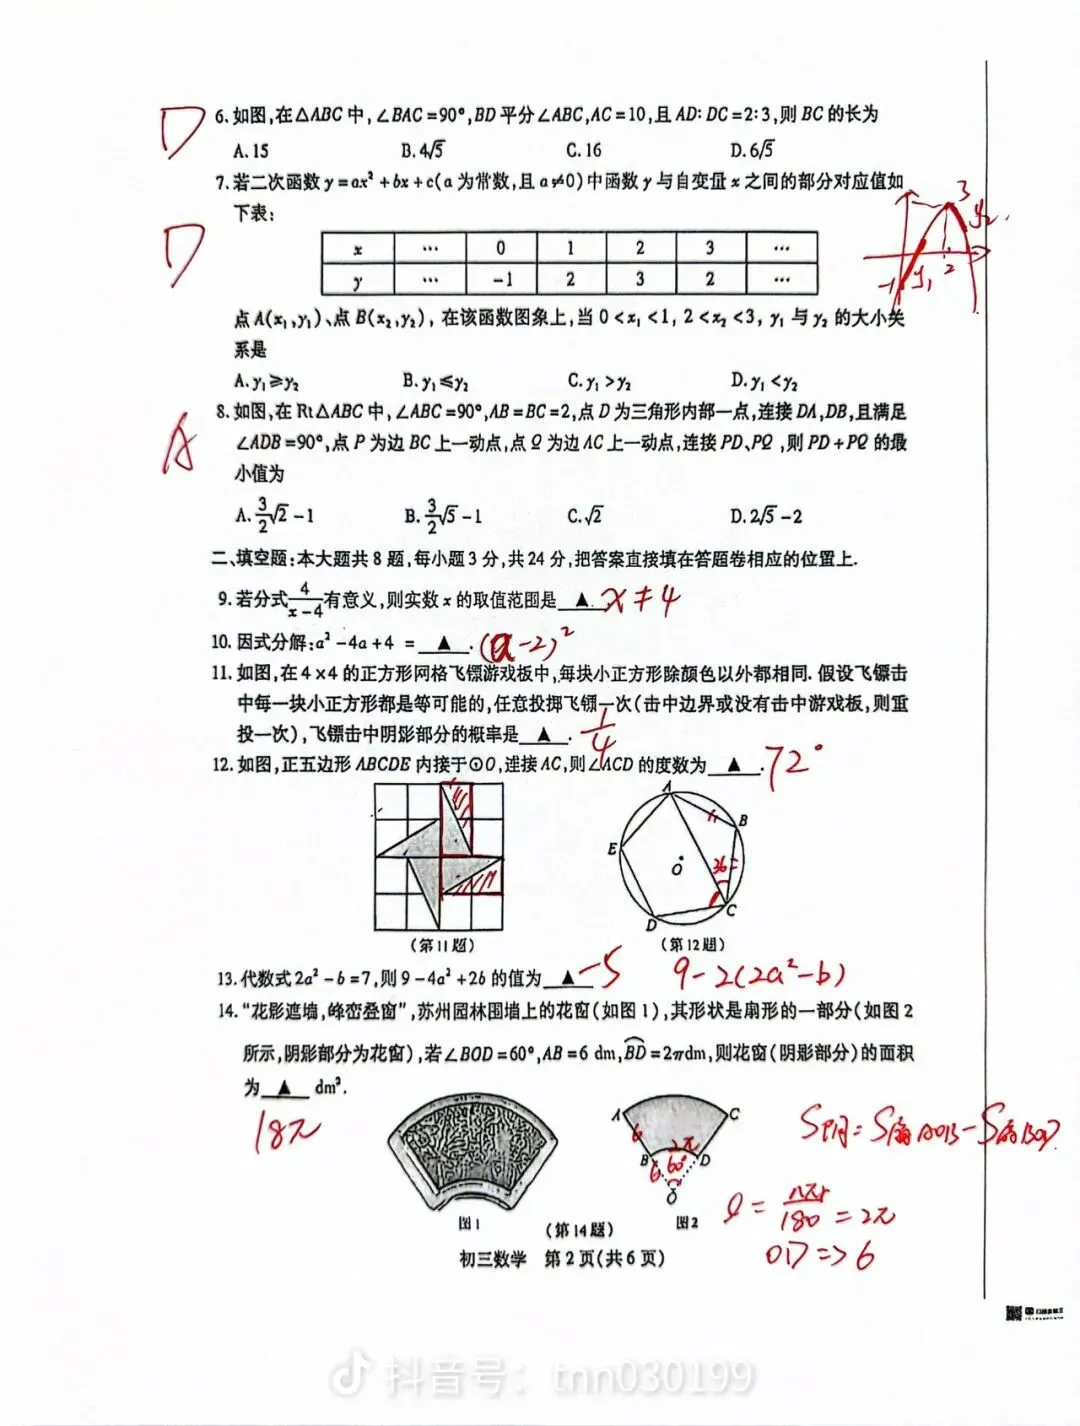 D
6.如图,在△ABC中,∠BAC=90°,BD平分∠ABC,AC=10,且AD:DC=2:3,则BC的长为
A.15 B.4√5 C.16 D.6√5
7.若二次函数y=ax²+bx+c(a为常数,且a≠0)中函数y与自变量x之间的部分对应值如
下表:
D
x … 0 1 2 3 …
y … -1 2 3 2 …
3
y₂
-1 y₁ 2
点A(x₁,y₁)、点B(x₂,y₂),在该函数图象上,当0<x₁<1,2<x₂<3,y₁与y₂的大小关
系是
A.y₁≥y₂ B.y₁≤y₂ C.y₁>y₂ D.y₁<y₂
A
8.如图,在Rt△ABC中,∠ABC=90°,AB=BC=2,点D为三角形内部一点,连接DA,DB,且满足
∠ADB=90°,点P为边BC上一动点,点Q为边AC上一动点,连接PD、PQ,则PD+PQ的最
小值为
A.3/2√2-1 B.3/2√5-1 C.√2 D.2√5-2
二、填空题:本大题共8题,每小题3分,共24分,把答案直接填在答题卷相应的位置上.
9.若分式4/(x-4)有意义,则实数x的取值范围是▲. x≠4
10.因式分解:a²-4a+4=▲. (a-2)²
11.如图,在4×4的正方形网格飞镖游戏板中,每块小正方形除颜色以外都相同.假设飞镖击
中每一块小正方形都是等可能的,任意投掷飞镖一次(击中边界或没有击中游戏板,则重
投一次),飞镖击中阴影部分的概率是▲. 1/4
12.如图,正五边形ABCDE内接于⊙O,连接AC,则∠ACD的度数为▲. 72°
A
B
E
O
36
C
D
(第11题) (第12题)
13.代数式2a²-b=7,则9-4a²+2b的值为▲ -5 9-2(2a²-b)
14."花影遮墙,峰峦叠窗",苏州园林围墙上的花窗(如图1),其形状是扇形的一部分(如图2
所示,阴影部分为花窗),若∠BOD=60°,AB=6 dm,BD=2πdm,则花窗(阴影部分)的面积
为▲dm².
18π
A C
6
B 2π D
6 60°
O
S阴=S扇AOB-S扇BOD
l=nπr/180=2π
OD=>6
图1 (第14题) 图2
初三数学 第2页(共6页)
抖音号:tnn030199